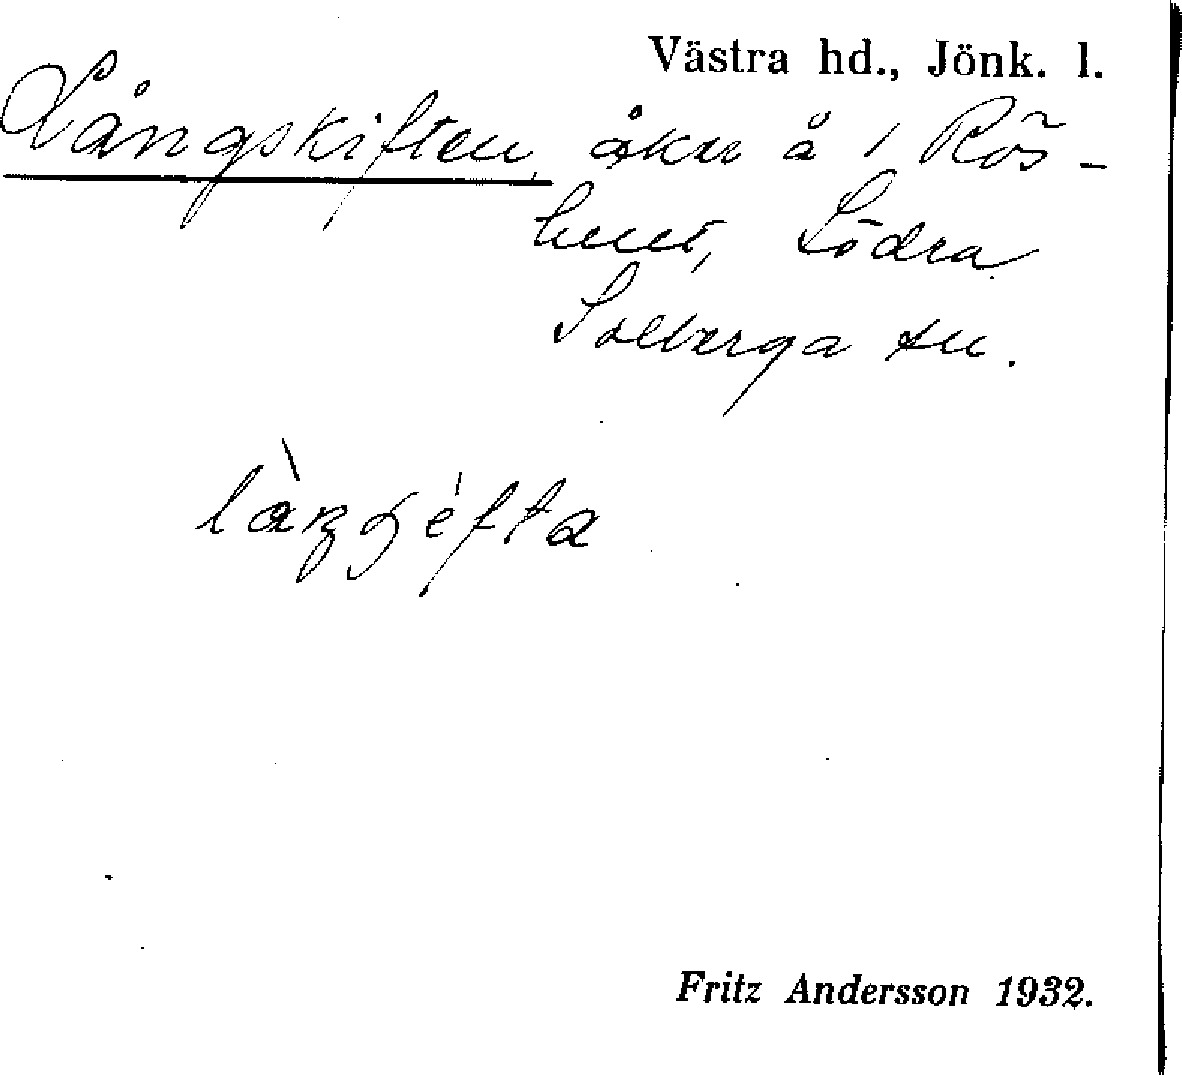 Västra hd., Jönk. l.
Långskiften, åker å 1 Rös-
hult, Södra
Solberga sn.
Fritz Andersson 1932.